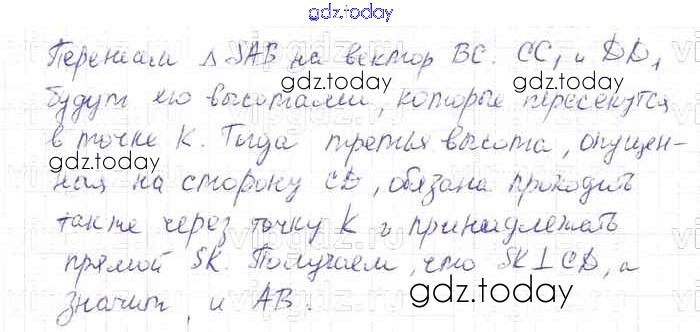 gdz.today
Перенесём Δ SAB на вектор BC. CC₁ и DD₁
gdz.today
будут его высотами, которые пересекутся
gdz.today
в точке K. Тогда третья высота, опущен-
gdz.today
ная на сторону CD, обязана проходить
также через точку K и принадлежать
прямой SK. Получаем, что SK⊥CD, а
значит, и AB.
gdz.today